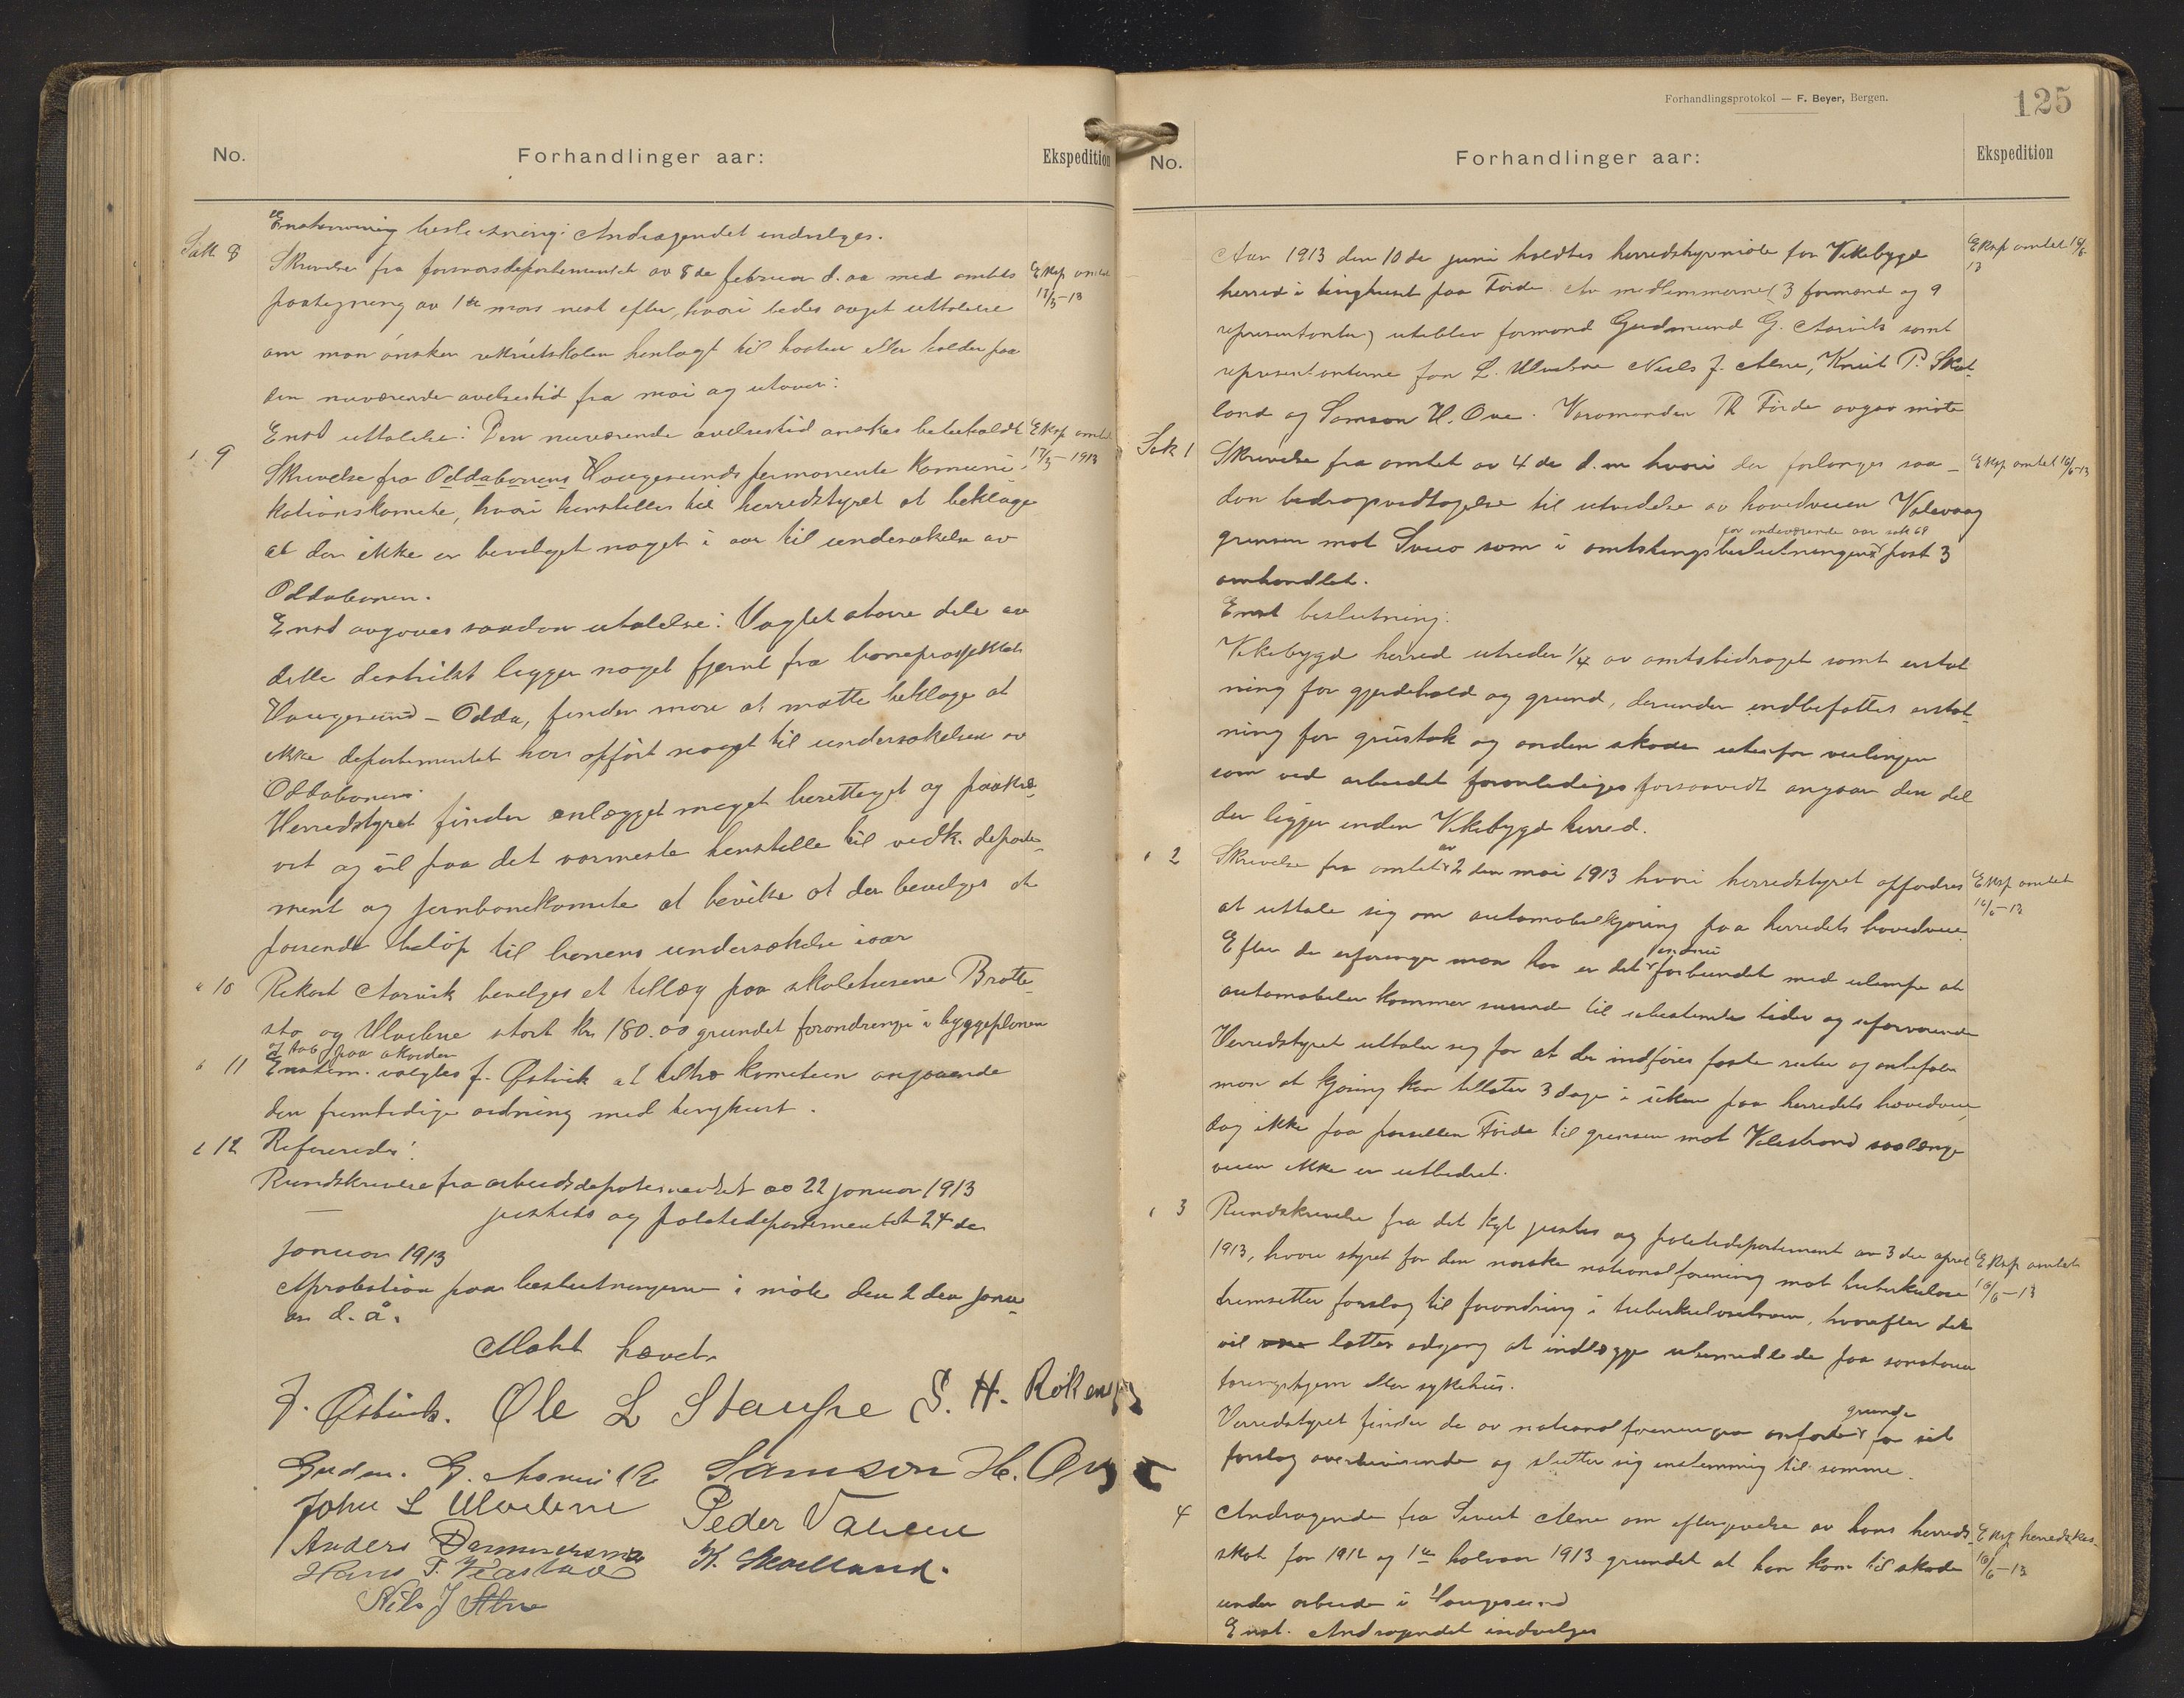 No.
Forhandlinger aar:
Ekspedition
Enstemmig beslutning: Andragendet indvilges.
Sak 8
Skrivelse fra forsvarsdepartementet av 8de februar d. aa med amtets
Eksp amtet
17/3-13
paategning av 1ste mars nest efter, hvori bedes avgit uttalelse
om man ønsker rekrutskolen henlagt til høsten eller holder paa
den nuværende øvelsestid fra mai og utover:
Enst uttalelse: Den nuværende øvelsestid ønskes beholdt
Eksp amtet
17/3-1913
" 9
Skrivelse fra Oddabanens Haugesunds permanente Komuni-
kationskomite, hvori henstilles til herredstyret at beklage
at der ikke er bevilget noget i aar til undersøkelse av
Oddabanen.
Enst avgives saadan utalelse: Vagtet større dele av
dette destrikt ligger noget fjernt fra baneprosjektet
Haugesund - Odda, finder man at maatte beklage at
ikke departementet har opført noget til undersøkelsen av
Oddabanen.
Herredstyret finder anlægget meget berettiget og paakræ-
vet og vil paa det varmeste henstille til vedk. departe-
ment og jernbanekomite at bevilke at der bevilges et
passende beløp til banens undersøkelse iaar
" 10
Rikart Aarvik bevilges et tillæg paa skolehusene Bratte-
stø og Ulvebne stort kr. 180.00 grundet forandringe i byggeplanen
og tab paa akorden
" 11
Enstem. valgtes J. Østvik at tiltræ komiteen angaaende
den fremtidige ordning med sengkurt.
" 12
Refereredes:
Rundskrivelse fra arbeidsdepartementet av 22 januar 1913
— justits og politidepartementet 24 de
januar 1913
Aprobation paa beslutningerne i møte den 2den janu-
ar d. å.
Møtet hævet.
J. Østvik. Ole L Staupe S. H. Røkenes
Gudm. G. Aarvik Samson H. Øvre
John L Ulvebne Peder Vaheu
Anders
Hans T. K. Skaaland.
Nils J Alne
Forhandlingsprotokol — F. Beyer, Bergen.
125
No.
Forhandlinger aar:
Ekspedition
Aar 1913 den 10de juni holdtes herredstyremøte for Vikebygd
Eksp amtet 16/6
13
herred i tinghuset paa Førde. Av medlemmerne (3 formænd og 9
representanter) uteblev formand Gudmund G. Aarvik samt
representanterne for L. Ulvebne Niels J. Alne, Knut P. Skat-
land og Samson H. Øvre. Varamanden Th Førde avgav møte
Sak 1
Skrivelse fra amtet av 4de d.m hvori der forlanges saa-
Eksp amtet 16/6-13
dan bidragsvedtagelse til utvidelse av hovedveien Valevaag
grænsen mot Sveio som i amtstingsbeslutningens for indeværende aar sak 68 post 3
omhandlet.
Enst beslutning:
Vikebygd herred utreder 1/4 av amtsbidraget samt erstat-
ning for gjerdehold og grund, derunder indbefattes erstat-
ning for grustak og anden skade utenfor veilinjen
som ved arbeidet foranlediges forsaavidt angaar den del
der ligger inden Vikebygd herred.
" 2
Skrivelse fra amtet av 2den mai 1913 hvori herredstyret opfordres
Eksp amtet
16/6-13
at uttale sig om automobilkjøring paa herredets hovedveie
Efter de erfaringer man har er det endnu forbundet med ulempe at
automobiler kommer susende til ubestemte tider og uforvarende
Herredstyret uttaler sig for at der indføres faste ruter og anbefaler
man at kjøring kan tillates 3 dage i uken paa herredets hovedveie
dog ikke paa parsellen Førde til grænsen mot Valestrand saalænge
veien ikke er utbedret.
" 3
Rundskrivelse fra det Kgl justis og politidepartement av 3die april
Eksp amtet
16/6-13
1913, hvori styret for den norske nationalforening mot tuberkulose
fremsetter forslag til forandring i tuberkuloseloven, hvorefter det
vil lettes adgang at indlægge ubemidlede paa sanatorier
tæringshjem eller sykehus.
Herredstyret finder de av nationalforeningen anførte grunde for sit
forslag overbevisende og slutter sig enstemmig til samme.
4
Andragende fra Sivert Alne om eftergivelse av hans herreds-
Eksp herredskas-
16/6-13
skat for 1912 og 1ste halvaar 1913 grundet at han kom til skade
under arbeide i Haugesund
Enst. Andragendet indvilges